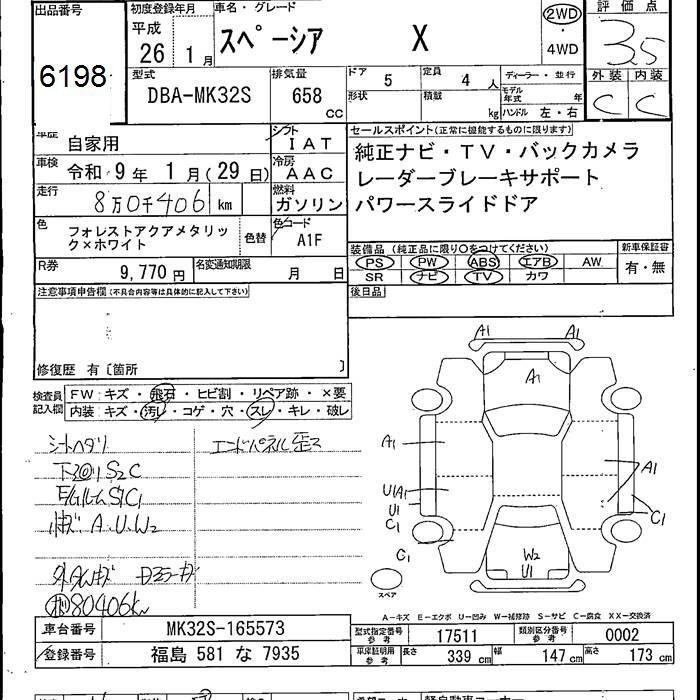 出品番号
6198
初度登録年月
平成
26 1月
車名・グレード
スペーシア X
2WD
・
4WD
評価点
3.5
外装 内装
C C
型式
DBA-MK32S
排気量
658
cc
ドア
5
定員
4 人
形状
積載
kg
ディーラー・並行
モデル
年式
年
ハンドル 左・右
車歴
自家用
シフト
IAT
車検
令和 9年 1月(29日)
冷房
AAC
走行
8万0千406 km
燃料
ガソリン
色
フォレストアクアメタリッ
ク×ホワイト
色替
色コード
A1F
R券
9,770 円
名変通知期限
月 日
セールスポイント(正常に機能するものに限ります)
純正ナビ・TV・バックカメラ
レーダーブレーキサポート
パワースライドドア
装備品 (純正品に限り○をつけてください)
新車保証書
PS PW ABS エアB AW
SR ナビ TV カワ
有・無
後日品
注意事項申告欄(不具合内容等は具体的に記入して下さい)
修復歴 有〔箇所 〕
検査員
記入欄
FW:キズ・飛石・ヒビ割・リペア跡・×要
内装:キズ・汚レ・コゲ・穴・スレ・キレ・破レ
シートヘタリ
エンドパネル歪ス
S2C
A.U.W2
80406km
A1 A1
A1
A1
U1A1
U1
C1
C1
A1
C1
W2
U1
スペア
A-キズ E-エクボ U-凹み W-補修跡 S-サビ C-腐食 XX-交換済
車台番号
MK32S-165573
型式指定番号
参考
17511
類別区分番号
参考
0002
登録番号
福島 581 な 7935
車庫証明用
参考
長さ
339 cm
幅
147 cm
高さ
173 cm